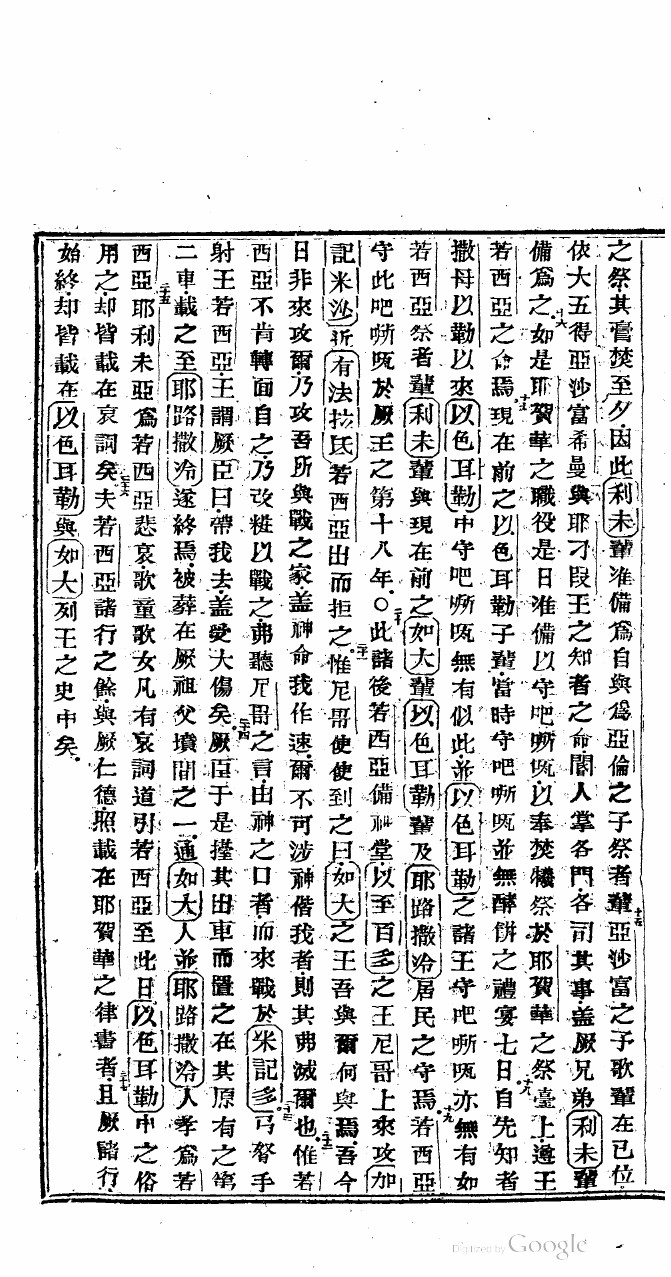 之祭其膏焚至夕因此利未輩准備爲自與爲亞倫之子祭者輩十五亞沙富之子歌輩在已位
依大五得亞沙富希曼與耶刁段王之知者之命閽人掌各門各司其事盖厥兄弟利未輩
備爲之十六如是耶賀華之職役是日准備以守吧㗭㕖以奉焚犧祭於耶賀華之祭臺上遵王
若西亞之命焉十七現在前之以色耳勒子輩當時守吧㗭㕖並無酵餅之禮宴七日十八自先知者
撒母以勒以來以色耳勒中守吧㗭㕖無有似此並以色耳勒之諸王守吧㗭㕖亦無有如
若西亞祭者輩利未輩與現在前之如大輩以色耳勒輩及耶路撒冷居民之守焉十九若西亞
守此吧㗭㕖於厥王之第十八年○二十此諸後若西亞備神堂以至百多之王尼哥上來攻加
記米沙近有法拉氐若西亞出而拒之二十一惟尼哥使使到之曰如大之王吾與爾何與焉吾今
日非來攻爾乃攻吾所與戰之家盖神命我作速爾不可涉神偕我者則其弗滅爾也二十二惟若
西亞不肯轉面自之乃改粧以戰之弗聽尼哥之言由神之口者而來戰於米記多二十三弓弩手
射王若西亞王謂厥臣曰帶我去盖受大傷矣二十四厥臣于是擡其出車而置之在其原有之第
二車載之至耶路撒冷遂終焉被葬在厥祖父墳間之一通如大人並耶路撒冷人孝爲若
西亞二十五耶利未亞爲若西亞悲哀歌童歌女凡有哀詞道引若西亞至此日以色耳勒中之俗
用之却皆載在哀詞矣二十六夫若西亞諸行之餘與厥仁德照載在耶賀華之律書者二十七且厥諸行
始終却皆載在以色耳勒與如大列王之史中矣
Digitized by Google